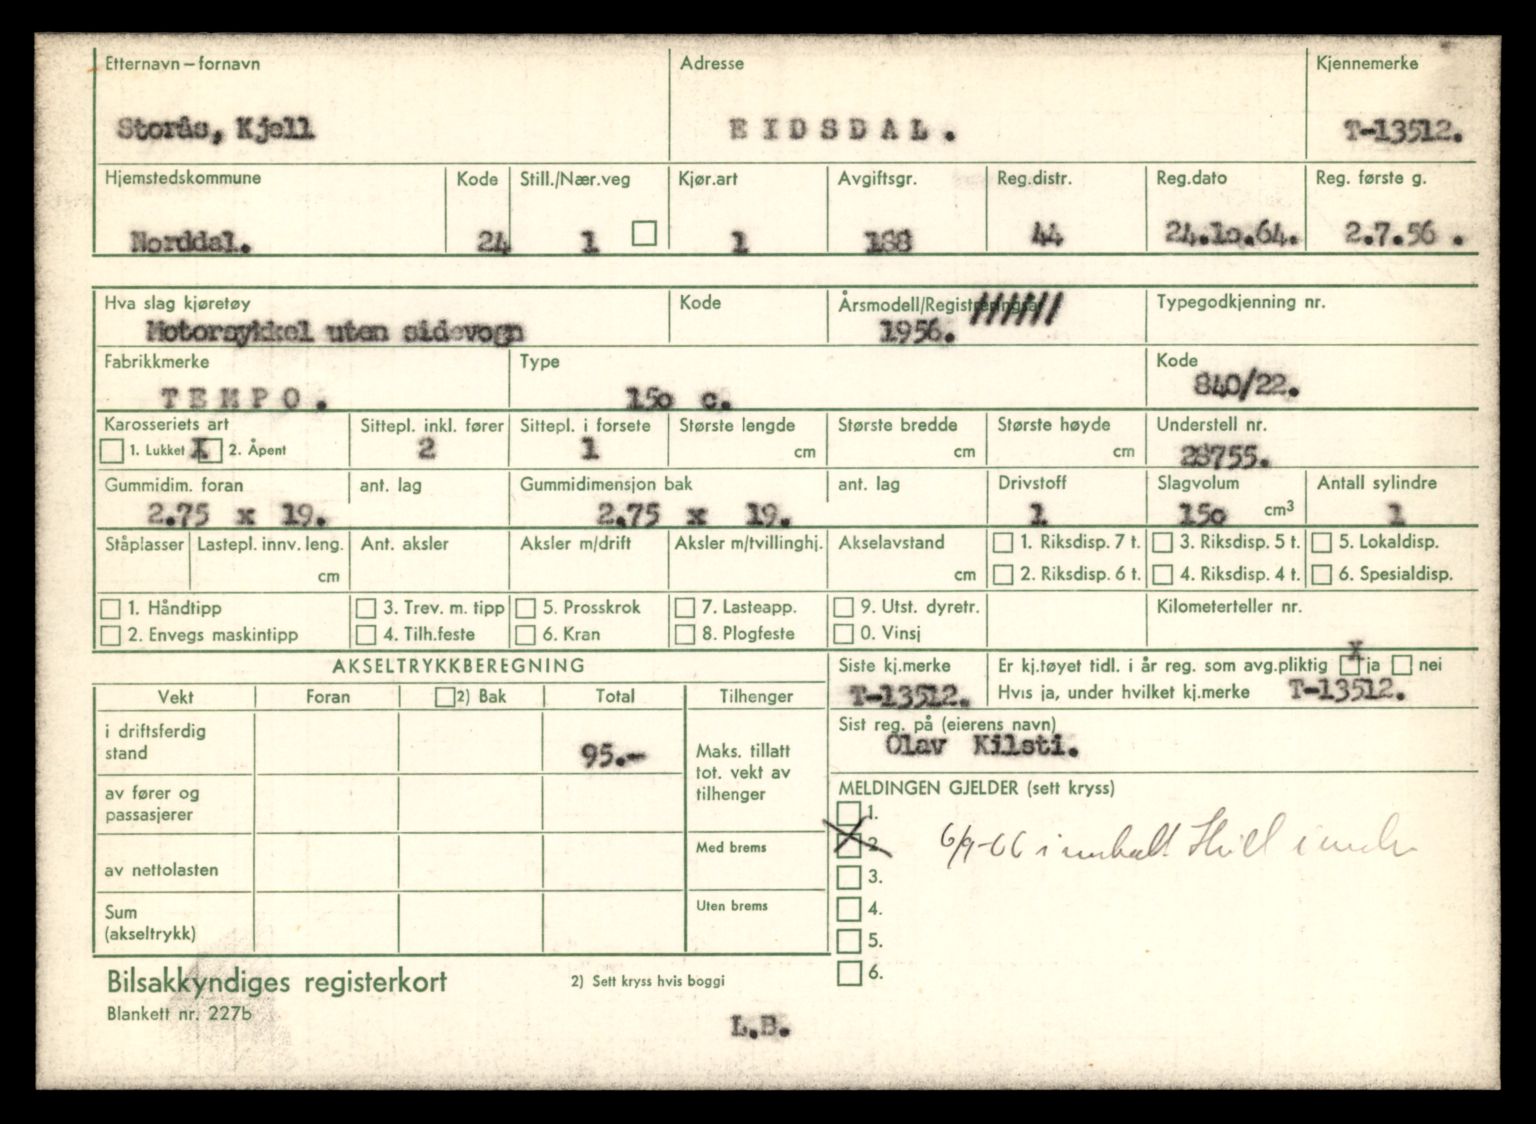 Etternavn – fornavn Adresse Kjennemerke
Storås, Kjell EIDSDAL. T-13512.
Hjemstedskommune Kode Still./Nær.veg Kjør.art Avgiftsgr. Reg.distr. Reg.dato Reg. første g.
Norddal. 24 1 1 188 44 24.10.64. 2.7.56 .
Hva slag kjøretøy Kode Årsmodell/Registreringsår Typegodkjenning nr.
Motorsykkel uten sidevogn 1956.
Fabrikkmerke Type Kode
TEMPO. 150 c. 840/22.
Karosseriets art Sittepl. inkl. fører Sittepl. i forsete Største lengde Største bredde Største høyde Understell nr.
1. Lukket X 2. Åpent 2 1 cm cm cm 28755.
Gummidim. foran ant. lag Gummidimensjon bak ant. lag Drivstoff Slagvolum Antall sylindre
2.75 x 19. 2.75 x 19. 1 150 cm3 1
Ståplasser Lastepl. innv. leng. Ant. aksler Aksler m/drift Aksler m/tvillinghj. Akselavstand 1. Riksdisp. 7 t. 3. Riksdisp. 5 t. 5. Lokaldisp.
cm cm 2. Riksdisp. 6 t. 4. Riksdisp. 4 t. 6. Spesialdisp.
1. Håndtipp 3. Trev. m. tipp 5. Prosskrok 7. Lasteapp. 9. Utst. dyretr. Kilometerteller nr.
2. Envegs maskintipp 4. Tilh.feste 6. Kran 8. Plogfeste 0. Vinsj
AKSELTRYKKBEREGNING Siste kj.merke Er kj.tøyet tidl. i år reg. som avg.pliktig X ja nei
Vekt Foran 2) Bak Total Tilhenger T-13512. Hvis ja, under hvilket kj.merke T-13512.
i driftsferdig stand 95.- Maks. tillatt tot. vekt av tilhenger
Sist reg. på (eierens navn)
Olav Kilsti.
av fører og passasjerer
MELDINGEN GJELDER (sett kryss)
1.
X 2. 6/9-66
Med brems
av nettolasten 3.
Uten brems 4.
Sum (akseltrykk) 5.
6.
Bilsakkyndiges registerkort 2) Sett kryss hvis boggi
Blankett nr. 227b
L.B.